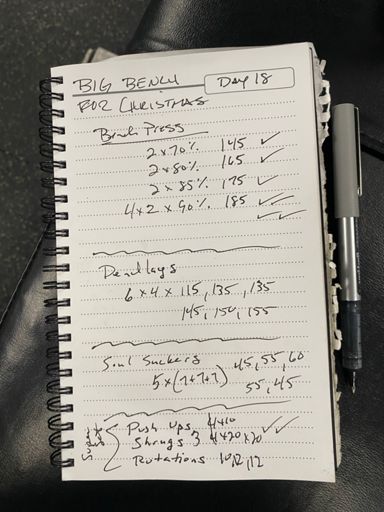 BIG BENCH
Day 18
FOR CHRISTMAS
Bench Press
2 x 70% 145 ✓
2 x 80% 165 ✓
2 x 85% 175 ✓
4 x 2 x 90% 185 ✓✓
✓✓
Pendlays
6 x 4 x 115, 135, 135
145, 150, 155
Soul Suckers 45, 55, 60
5 x (7+7+7) 55, 45
Push Ups 4x10
Shrugs 3 4x20x20 ✓✓
Rotations 10, 12, 12